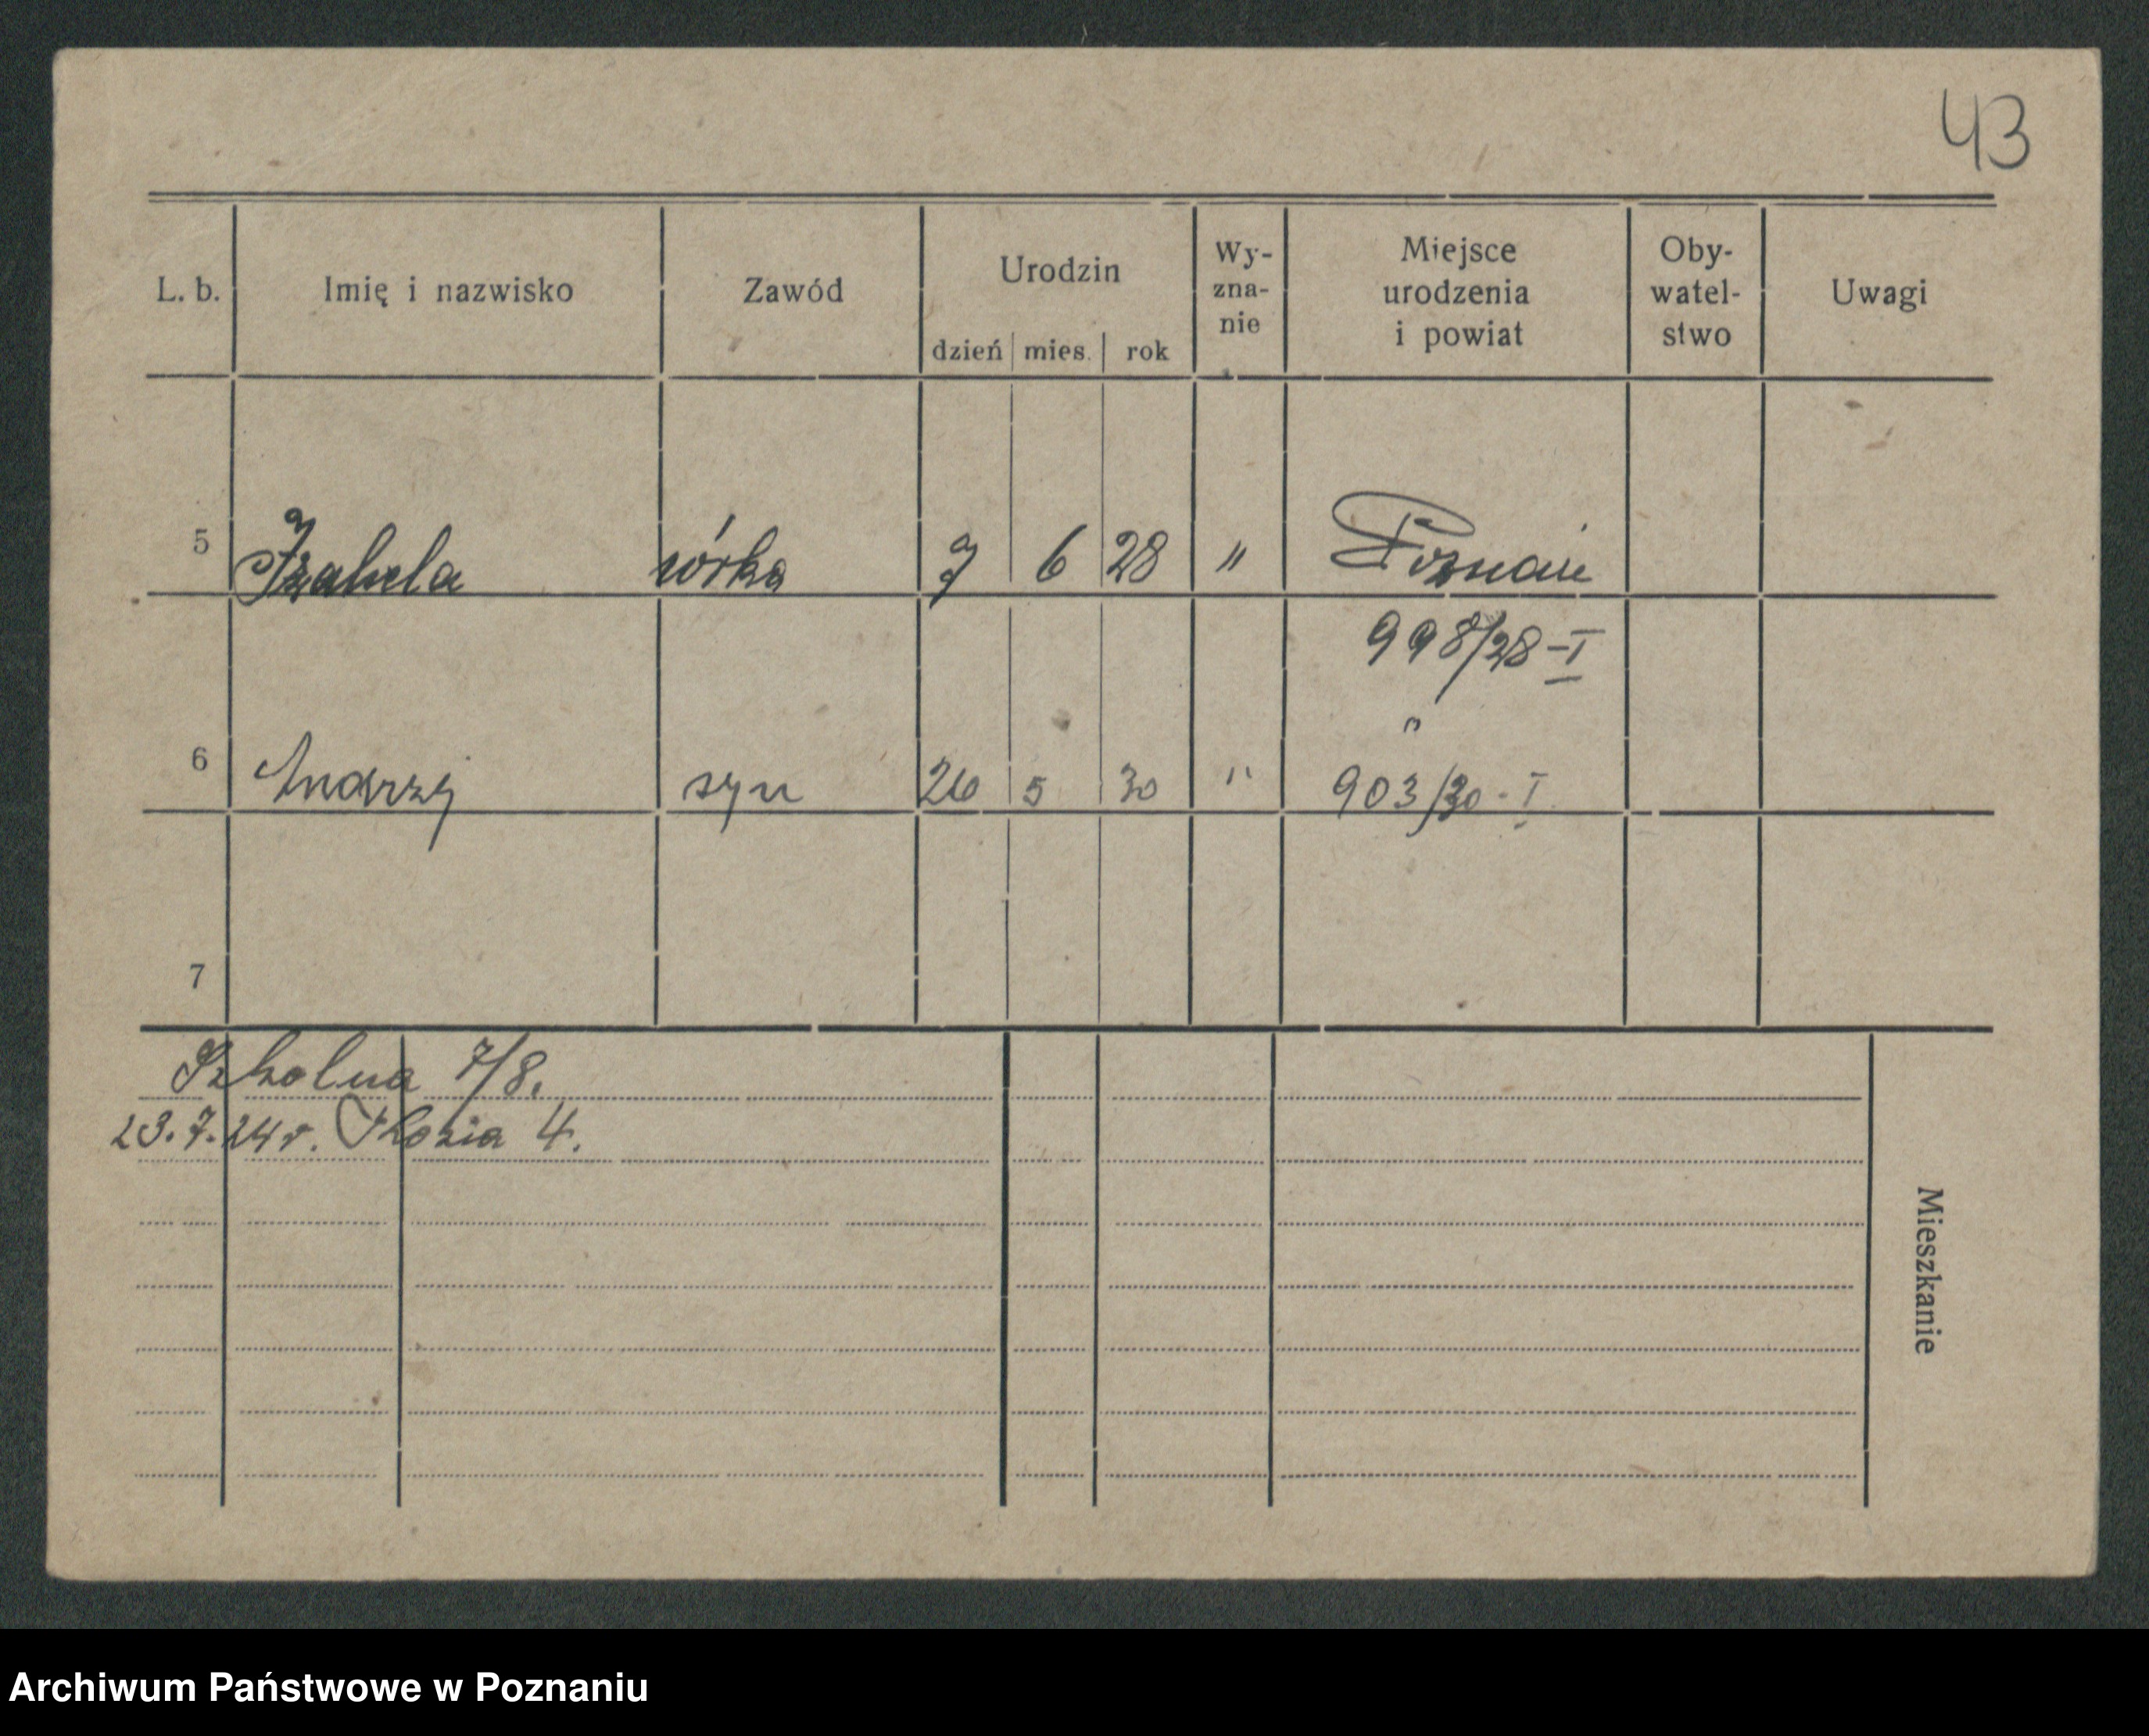 43
L. b. Imię i nazwisko Zawód Urodzin dzień mies. rok Wy-zna-nie Miejsce urodzenia i powiat Oby-watel-stwo Uwagi
5 Izabela córka 7 6 28 " Poznań
998/28-I
"
6 Andrzej syn 26 5 30 " 903/30-I
7
Szkolna 7/8.
23.7.24r. Kozia 4.
Mieszkanie
Archiwum Państwowe w Poznaniu